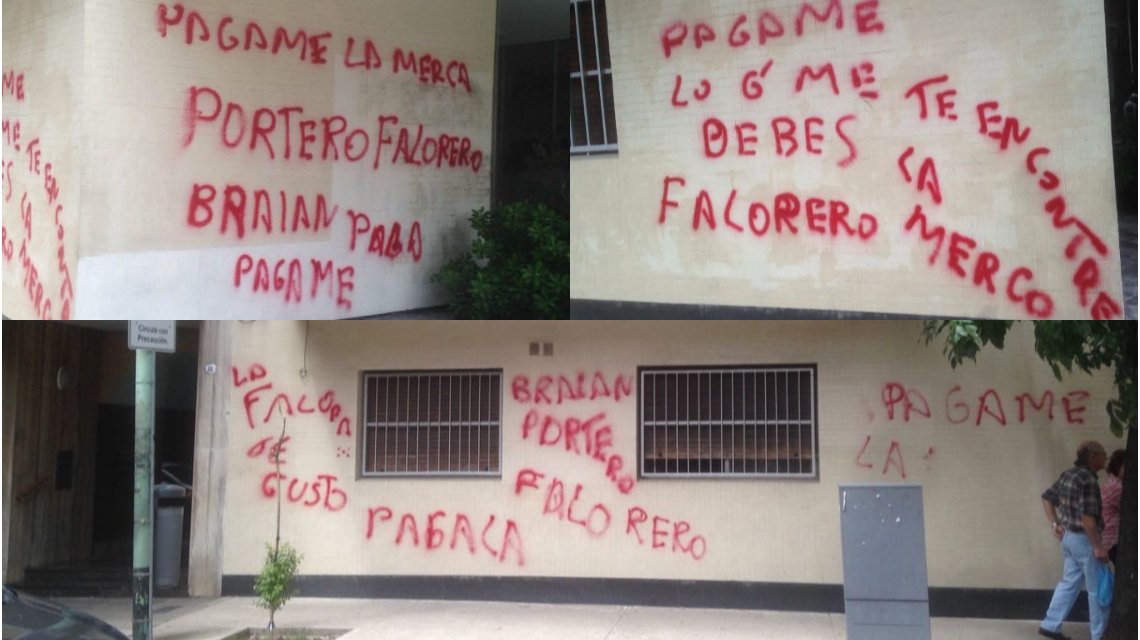 PAGAME LA MERCA
PORTERO FALORERO
BRAIAN PAGA
PAGAME
ME
ME TE ENCONTRE
ES LA
RO MERC
PAGAME
LO Q ME
DEBES
FALORERO
TE ENCONTRE
LA
MERCO
Circule con
Precaución.
LA
FALOPA
TE
GUSTO
PAGALA
BRAIAN
PORTERO
FALORERO
PAGAME
LA